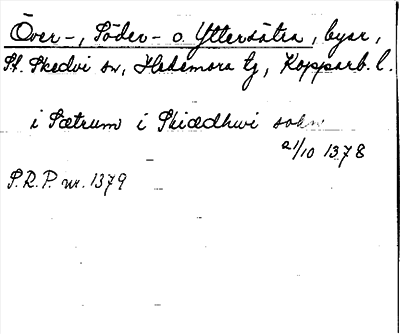 Över-, Söder- o. Yttersätra, byar,
St. Skedvi sn, Hedemora tg, Kopparb. l.
i Sætrum i Skiædhwi sokn
21/10 1378
S.R.P. nr. 1379